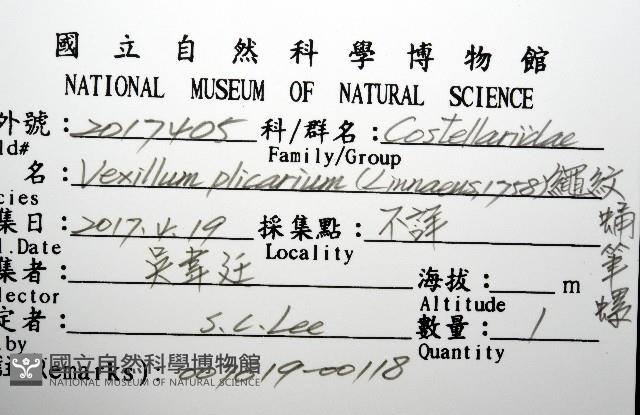 國立自然科學博物館
NATIONAL MUSEUM OF NATURAL SCIENCE
外號： 2017405 科/群名： Costellariidae
ld# Family/Group
名： Vexillum plicarium (Linnaeus, 1758) 繩紋蛹筆螺
cies
集日： 2017.4.19 採集點： 不詳
l.Date Locality
集者： 吳韋廷 海拔： m
lector Altitude
定者： S.C.Lee 數量： 1
.by Quantity
註(Remarks): -00118
國立自然科學博物館
NATIONAL MUSEUM OF NATURAL SCIENCE